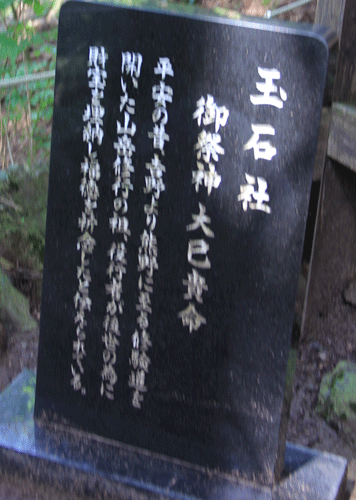 玉石社
御祭神 大己貴命
平安の昔 吉野より熊野に至る修験道を
開いた山岳修行の祖、役行者が後世の為に
財宝を埋納し福徳を祈念したと伝えられている。